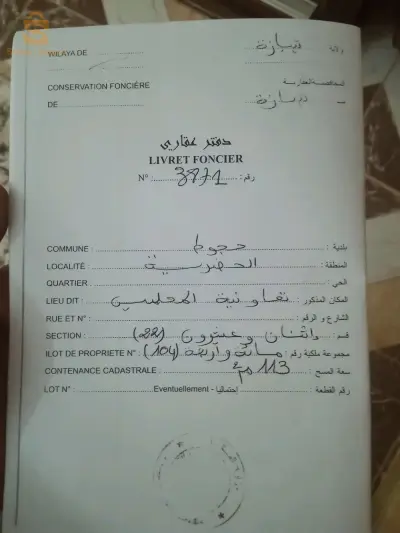 WILAYA DE تيبازة ولاية
CONSERVATION FONCIÈRE المحافظة العقارية
DE تيبازة
دفتر عقاري
LIVRET FONCIER
N° : 3871 رقم :
COMMUNE : حجوط بلدية :
LOCALITÉ : الحضرية المنطقة :
QUARTIER : الحي :
LIEU DIT : تعاونية المعلمين المكان المذكور :
RUE ET N° : الشارع و الرقم :
SECTION : إثنان وعشرون (22) قسم :
ILOT DE PROPRIETE N° : مائة وأربعة (104) مجموعة ملكية رقم :
CONTENANCE CADASTRALE : 113 م² سعة المسح :
LOT N° : Eventuellement - إحتماليا رقم القطعة :